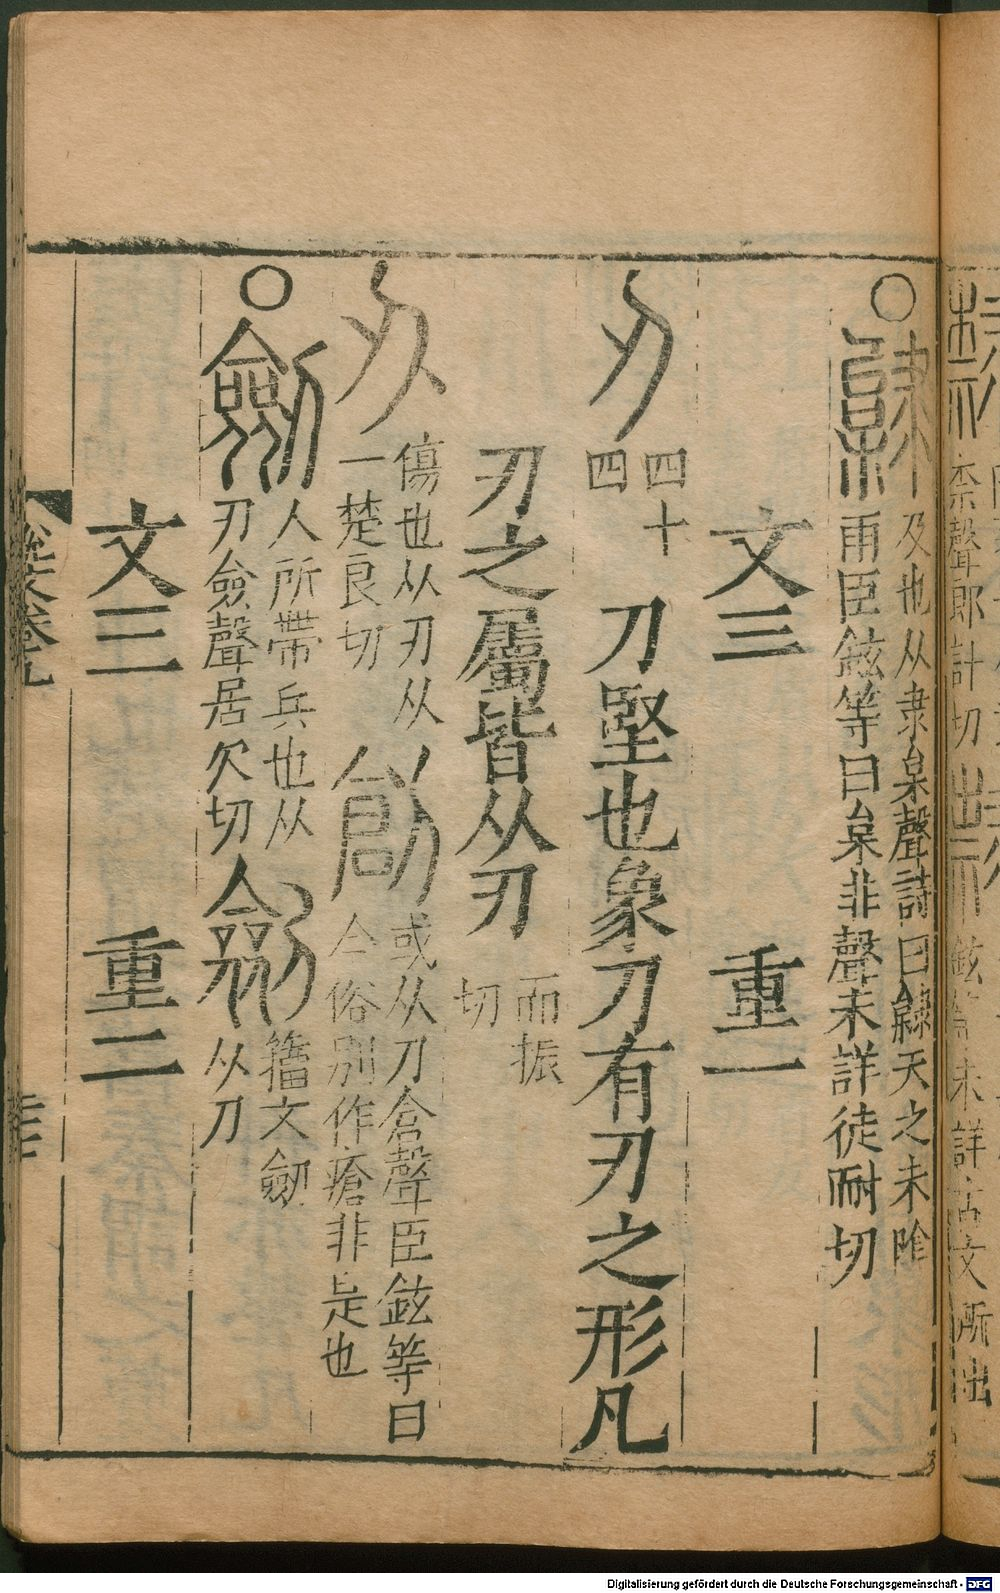 柰聲郎計切
鉉等未詳古文所出
○𨽿
及也从隶枲聲詩曰𨽿天之未陰
雨臣鉉等曰枲非聲未詳徒耐切
文三 重一
刃
四十
四
刀堅也象刀有刃之形凡
刃之屬皆从刃
而振
切
刅
傷也从刃从
一楚良切
創
或从刀倉聲臣鉉等曰
今俗別作瘡非是也
○劒
人所帶兵也从
刃僉聲居欠切
劍
籀文劒
从刀
文三 重二
說文卷九